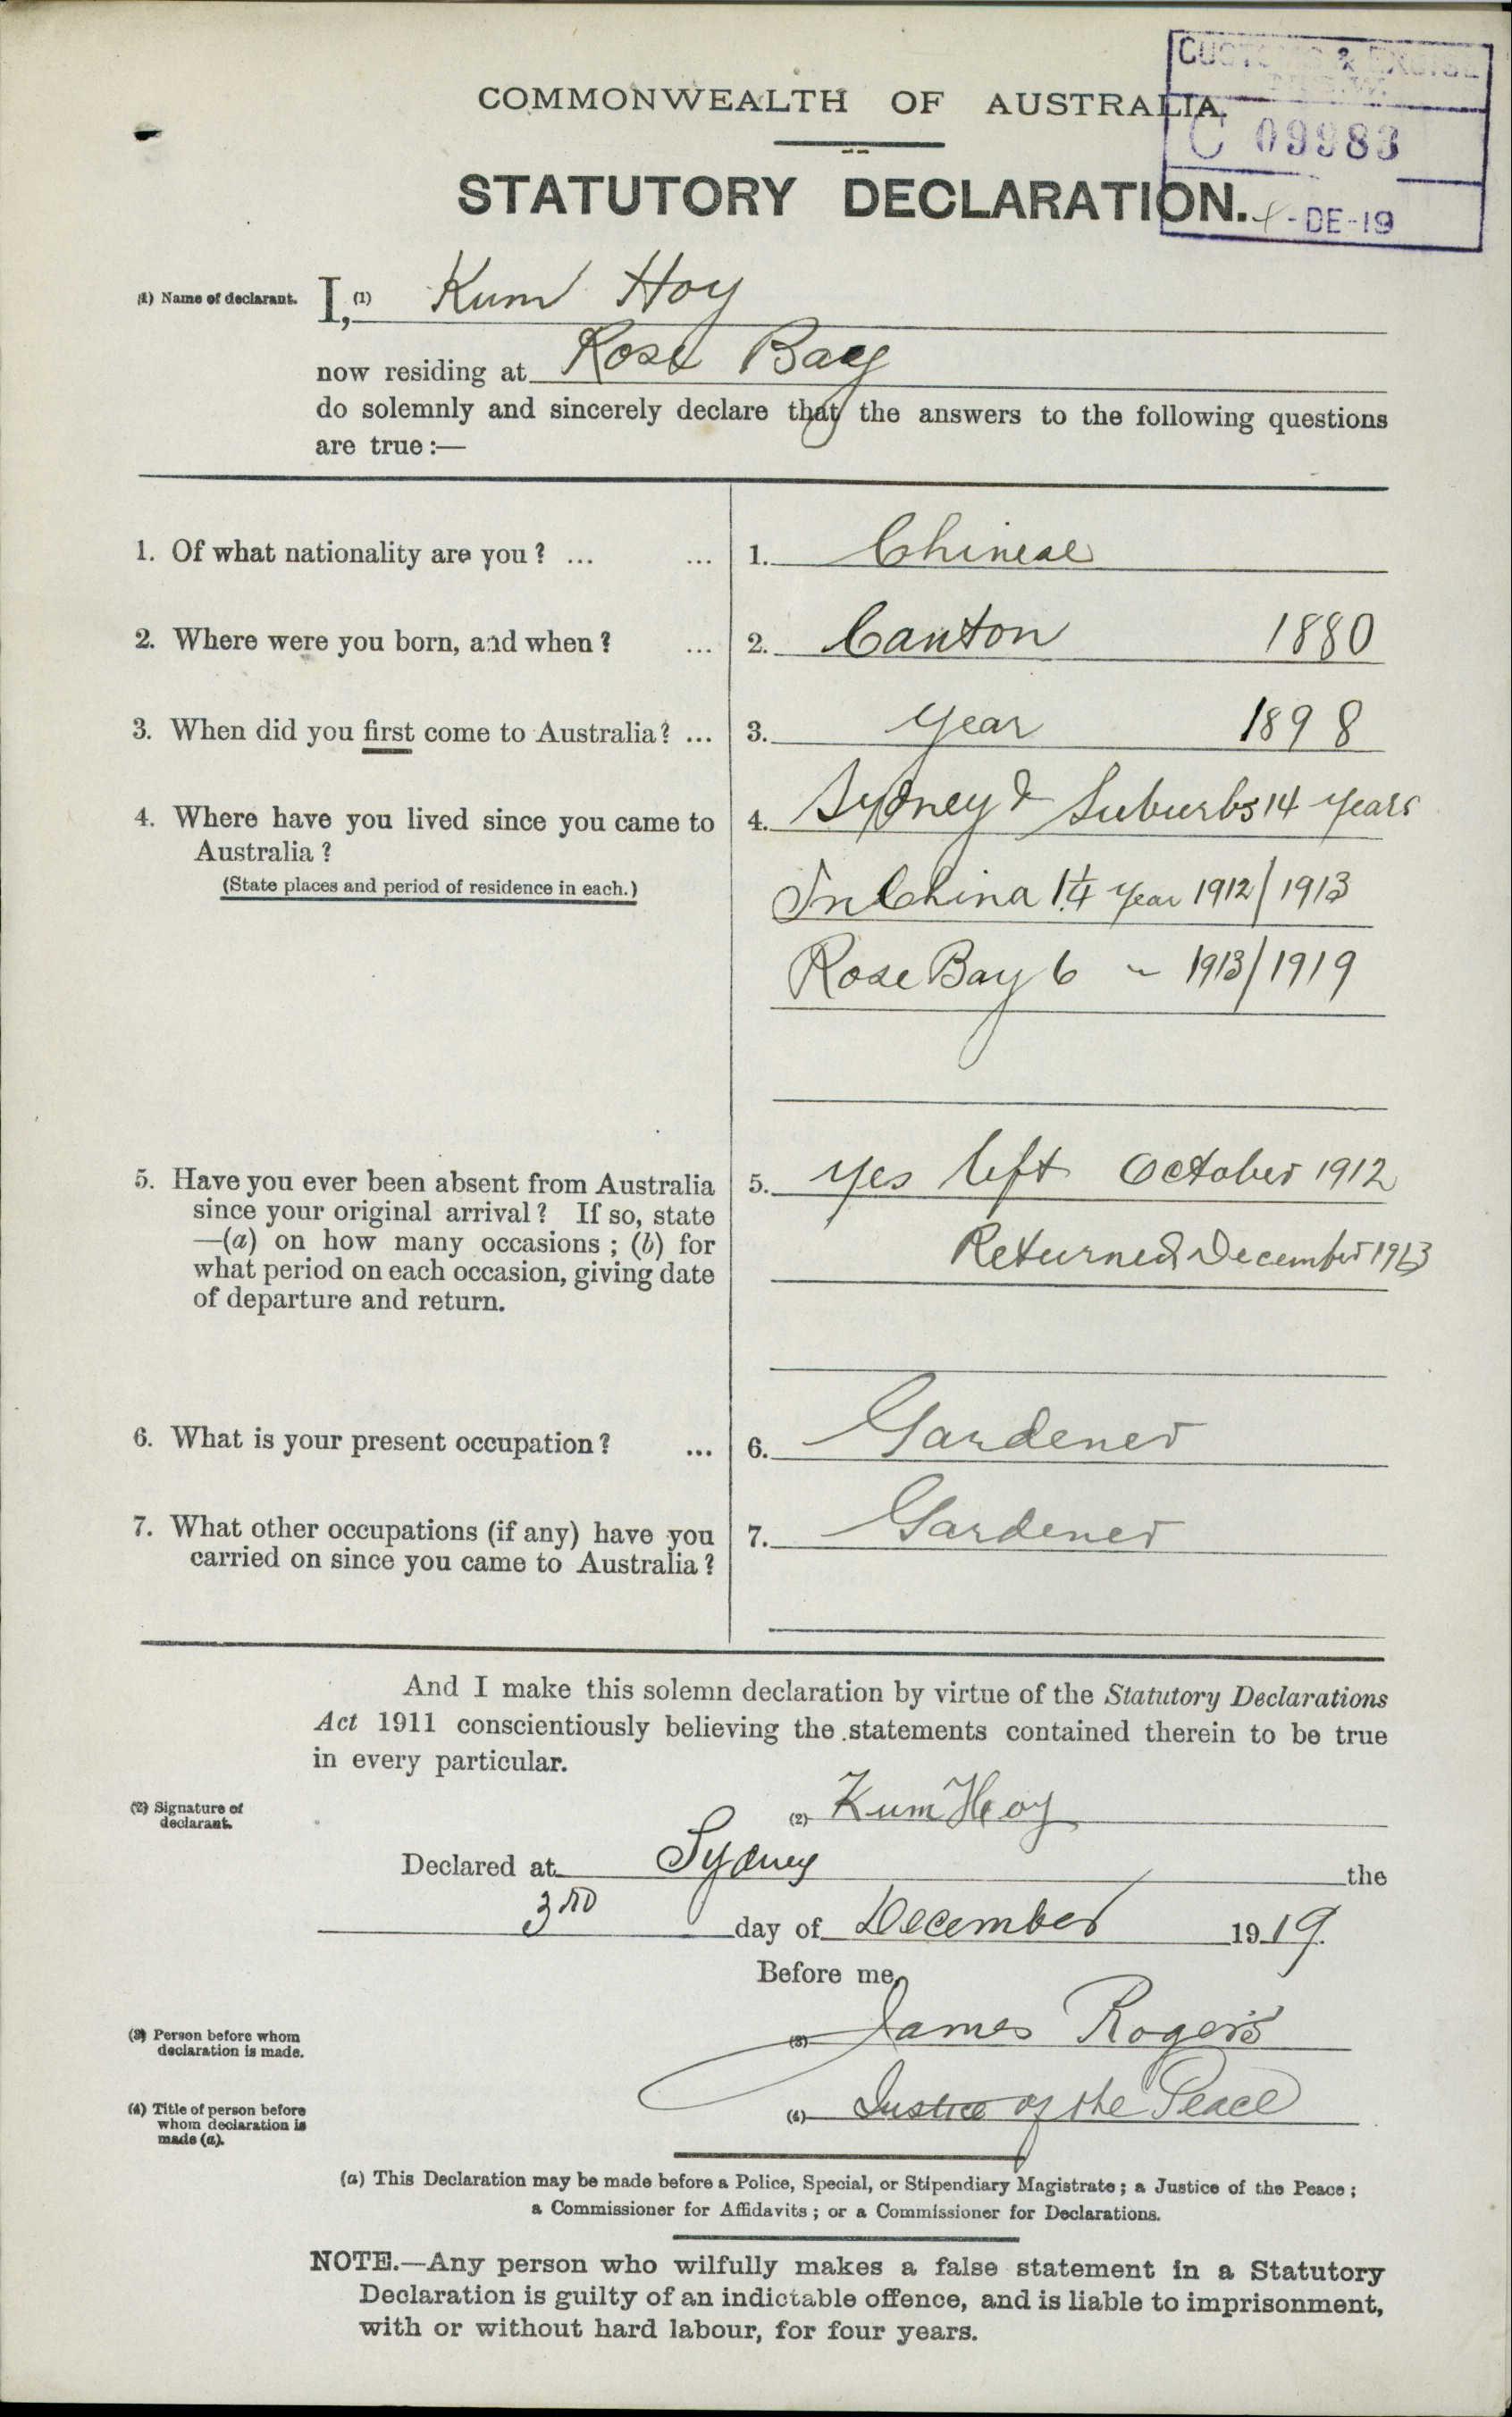 CUSTOMS & EXCISE
COMMONWEALTH OF AUSTRALIA.
C 09983
STATUTORY DECLARATION.
- DE -19
(1) Name of declarant. I, (1) Kum Hoy
now residing at Rose Bay
do solemnly and sincerely declare that the answers to the following questions
are true :—
1. Of what nationality are you ? ... ... 1. Chinese
2. Where were you born, and when ? ... 2. Canton 1880
3. When did you first come to Australia ? ... 3. year 1898
4. Where have you lived since you came to 4. Sydney & Suburbs 14 years
Australia ?
(State places and period of residence in each.) In China 1¼ year 1912/1913
Rose Bay 6 " 1913/1919
5. Have you ever been absent from Australia 5. yes left October 1912
since your original arrival ? If so, state
—(a) on how many occasions ; (b) for Returned December 1913
what period on each occasion, giving date
of departure and return.
6. What is your present occupation ? ... 6. Gardener
7. What other occupations (if any) have you 7. Gardener
carried on since you came to Australia ?
And I make this solemn declaration by virtue of the Statutory Declarations
Act 1911 conscientiously believing the statements contained therein to be true
in every particular.
(2) Signature of (2) Kum Hoy
declarant.
Declared at Sydney the
3RD day of December 1919.
Before me,
(3) Person before whom (3) James Rogers
declaration is made.
(4) Title of person before (4) Justice of the Peace
whom declaration is
made (a).
(a) This Declaration may be made before a Police, Special, or Stipendiary Magistrate ; a Justice of the Peace ;
a Commissioner for Affidavits ; or a Commissioner for Declarations.
NOTE.—Any person who wilfully makes a false statement in a Statutory
Declaration is guilty of an indictable offence, and is liable to imprisonment,
with or without hard labour, for four years.